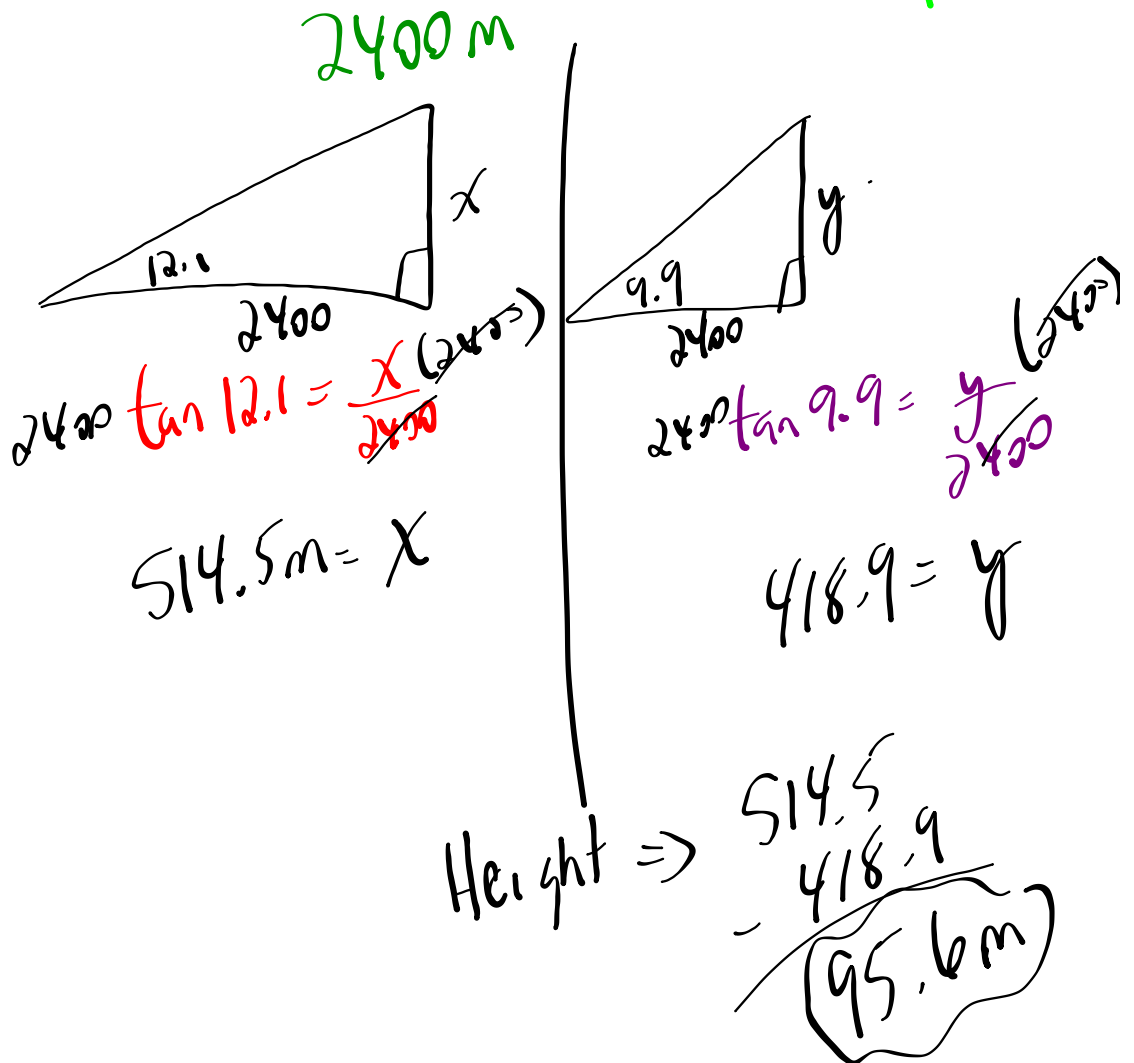 2400 m
x
12.1
2400
2400 tan 12.1 = x/2400 (2400)
514.5m = x
y
9.9
2400
2400 tan 9.9 = y/2400 (2400)
418.9 = y
Height => 514.5
- 418.9
95.6 m